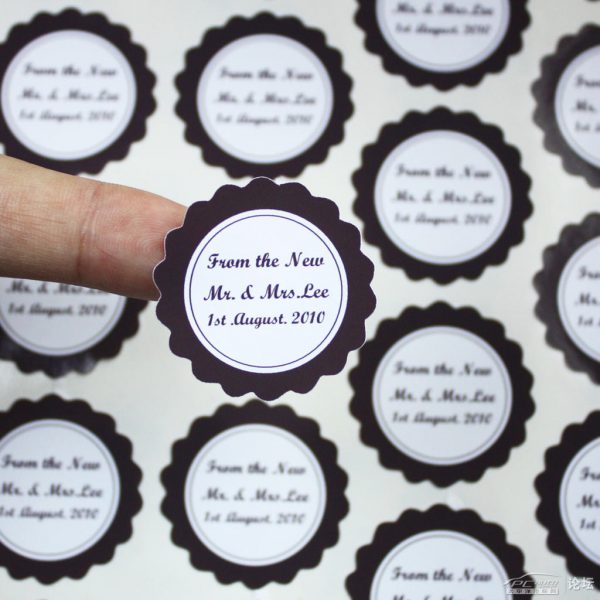 From the New
Mr. & Mrs.Lee
1st August. 2010
From the New
Mr. & Mrs.Lee
1st August. 2010
From the New
Mr. & Mrs.Lee
1st August. 2010
From the New
Mr. & Mrs.Lee
1st August. 2010
From the New
Mr. & Mrs.Lee
1st August. 2010
From the New
Mr. & Mrs.Lee
1st August. 2010
From the New
Mr. & Mrs.Lee
1st August. 2010
From the New
Mr. & Mrs.Lee
论坛